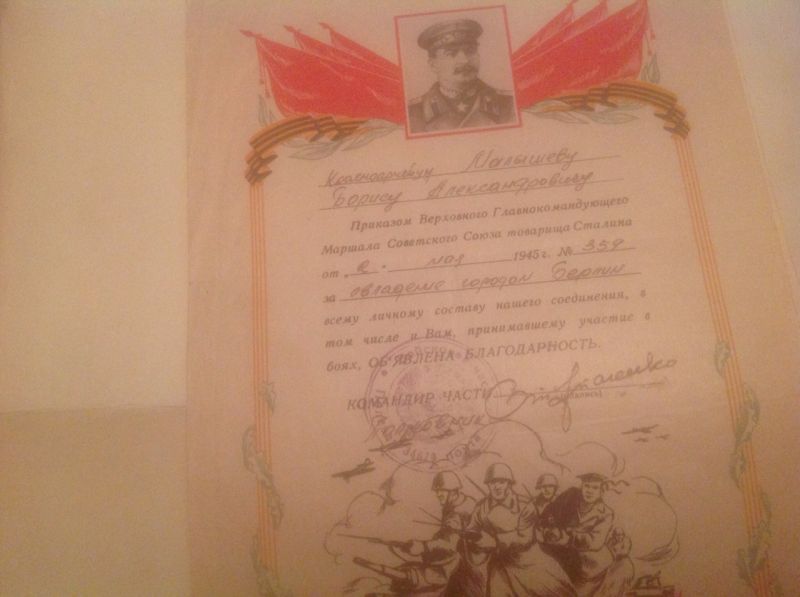 Красноармейцу Малышеву
Борису Александровичу
Приказом Верховного Главнокомандующего
Маршала Советского Союза товарища Сталина
от „2“ мая 1945 г. № 359
за овладение городом Берлин
всему личному составу нашего соединения, в
том числе и Вам, принимавшему участие в
боях, ОБ'ЯВЛЕНА БЛАГОДАРНОСТЬ.
КОМАНДИР ЧАСТИ
(подпись)